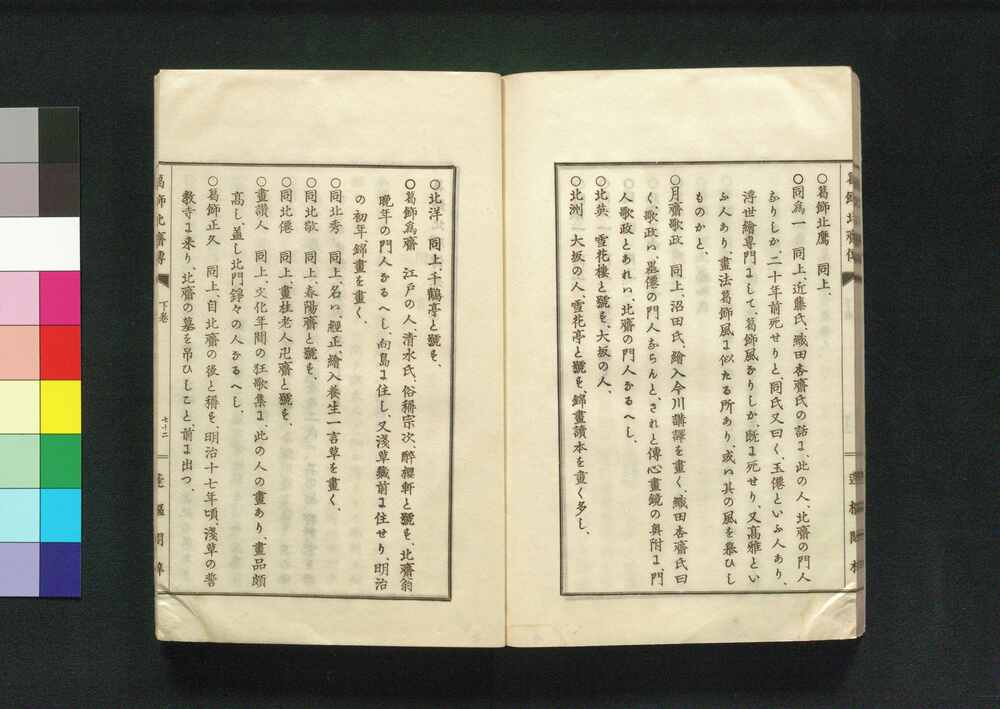 ○葛飾北鷹　同上、
○同爲一　同上、近藤氏、織田杏齋氏の話に、此の人、北齋の門人
なりしか二十年前死せりと、同氏又曰く、玉僊といふ人あり、
浮世繪專門にして、葛飾風なりしか、既に死せり、又高雅とい
ふ人あり、畫法葛飾風に似たる所あり、或ハ其の風を慕ひし
ものかと、
○月齋歌政　同上、沼田氏、繪入今川講譯を畫く、織田杏齋氏曰
く、歌政ハ、墨僊の門人ならんと、されと傳心畫鏡の奥附に、門
人歌政とあれハ、北齋の門人なるへし、
○北英　雪花樓と號す、大坂の人、
○北洲　大坂の人、雪花亭と號す、錦畫讀本を畫く多し、
○北洋　同上、千鶴亭と號す、
○葛飾爲齋　江戸の人、清水氏、俗稱宗次、醉櫻軒と號す、北齋翁
晩年の門人なるへし、向島に住し、又淺草藏前に住せり、明治
の初年、錦畫を畫く、
○同北秀　同上、名ハ、經正、繪入養生一言草を畫く、
○同北敬　同上、春陽齋と號す、
○同北僊　同上、畫狂老人卍齋と號す、
○畫讃人　同上、文化年間の狂歌集に、此の人の畫あり、畫品頗
高し、蓋し北門錚々の人なるへし、
○葛飾正久　同上、自北齋の後と稱す、明治十七年頃、淺草の誓
教寺に來り、北齋の墓を吊ひしこと、前に出つ、
葛飾北齋傳
下卷
七十二